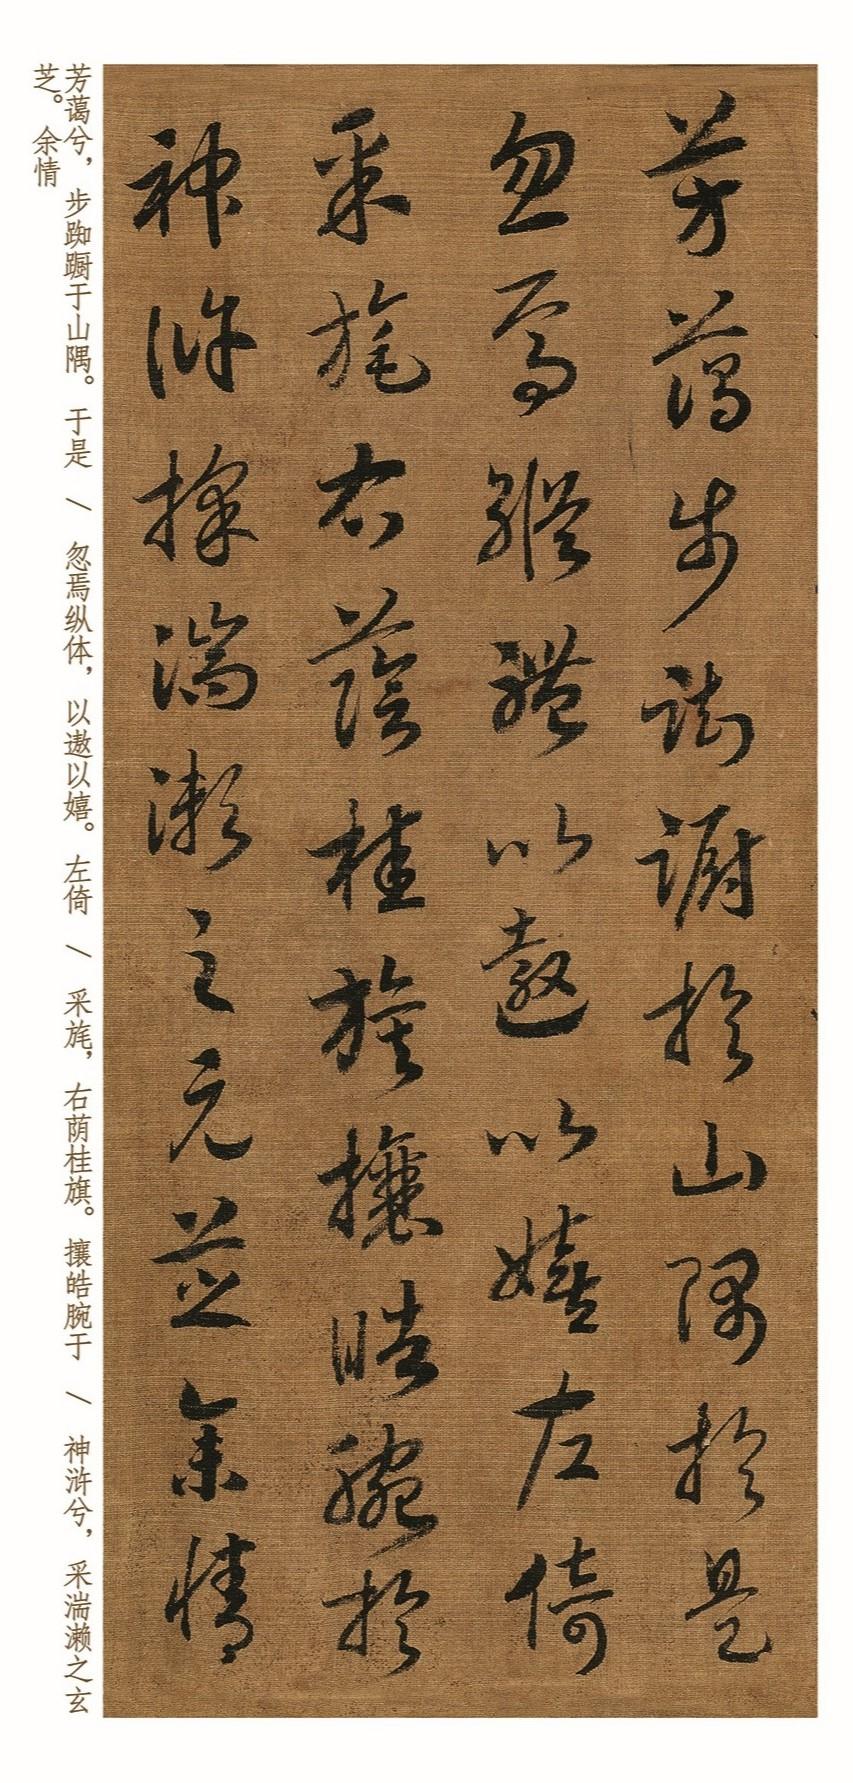 芳藹步踟蹰於山隅於是
忽焉縱體以遨以嬉左倚
采旄右蔭桂旗攘皓腕於
神滸採湍瀨之元芝余情
芳蔼兮，步踟蹰于山隅。于是 \ 忽焉纵体，以遨以嬉。左倚 \ 采旄，右荫桂旗。攘皓腕于 \ 神浒兮，采湍濑之玄
芝。余情